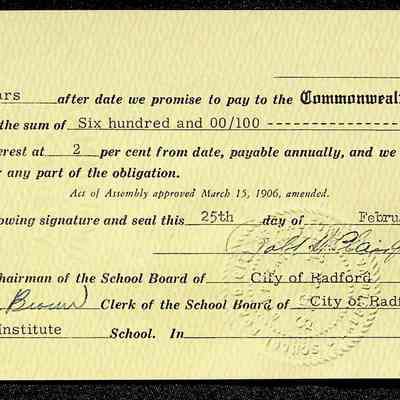 ars after date we promise to pay to the Commonweal
the sum of Six hundred and 00/100 --------------
erest at 2 per cent from date, payable annually, and we
r any part of the obligation.
Act of Assembly approved March 15, 1906, amended.
owing signature and seal this 25th day of Febru
hairman of the School Board of City of Radford
Brown Clerk of the School Board of City of Rad
Institute School. In